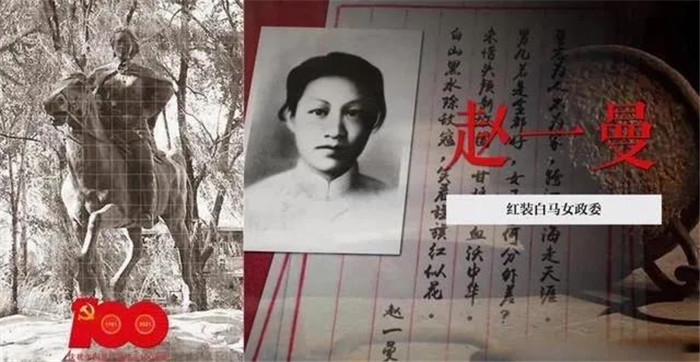 赵一曼
红装白马女政委
誓志为人不为家,跨 海走天涯。
男儿若是全都好,女 何分外差?
未惜头颅新 国,甘 血沃中华。
白山黑水除敌寇,笑看旌旗红似花。
赵一曼
100
1921 2021